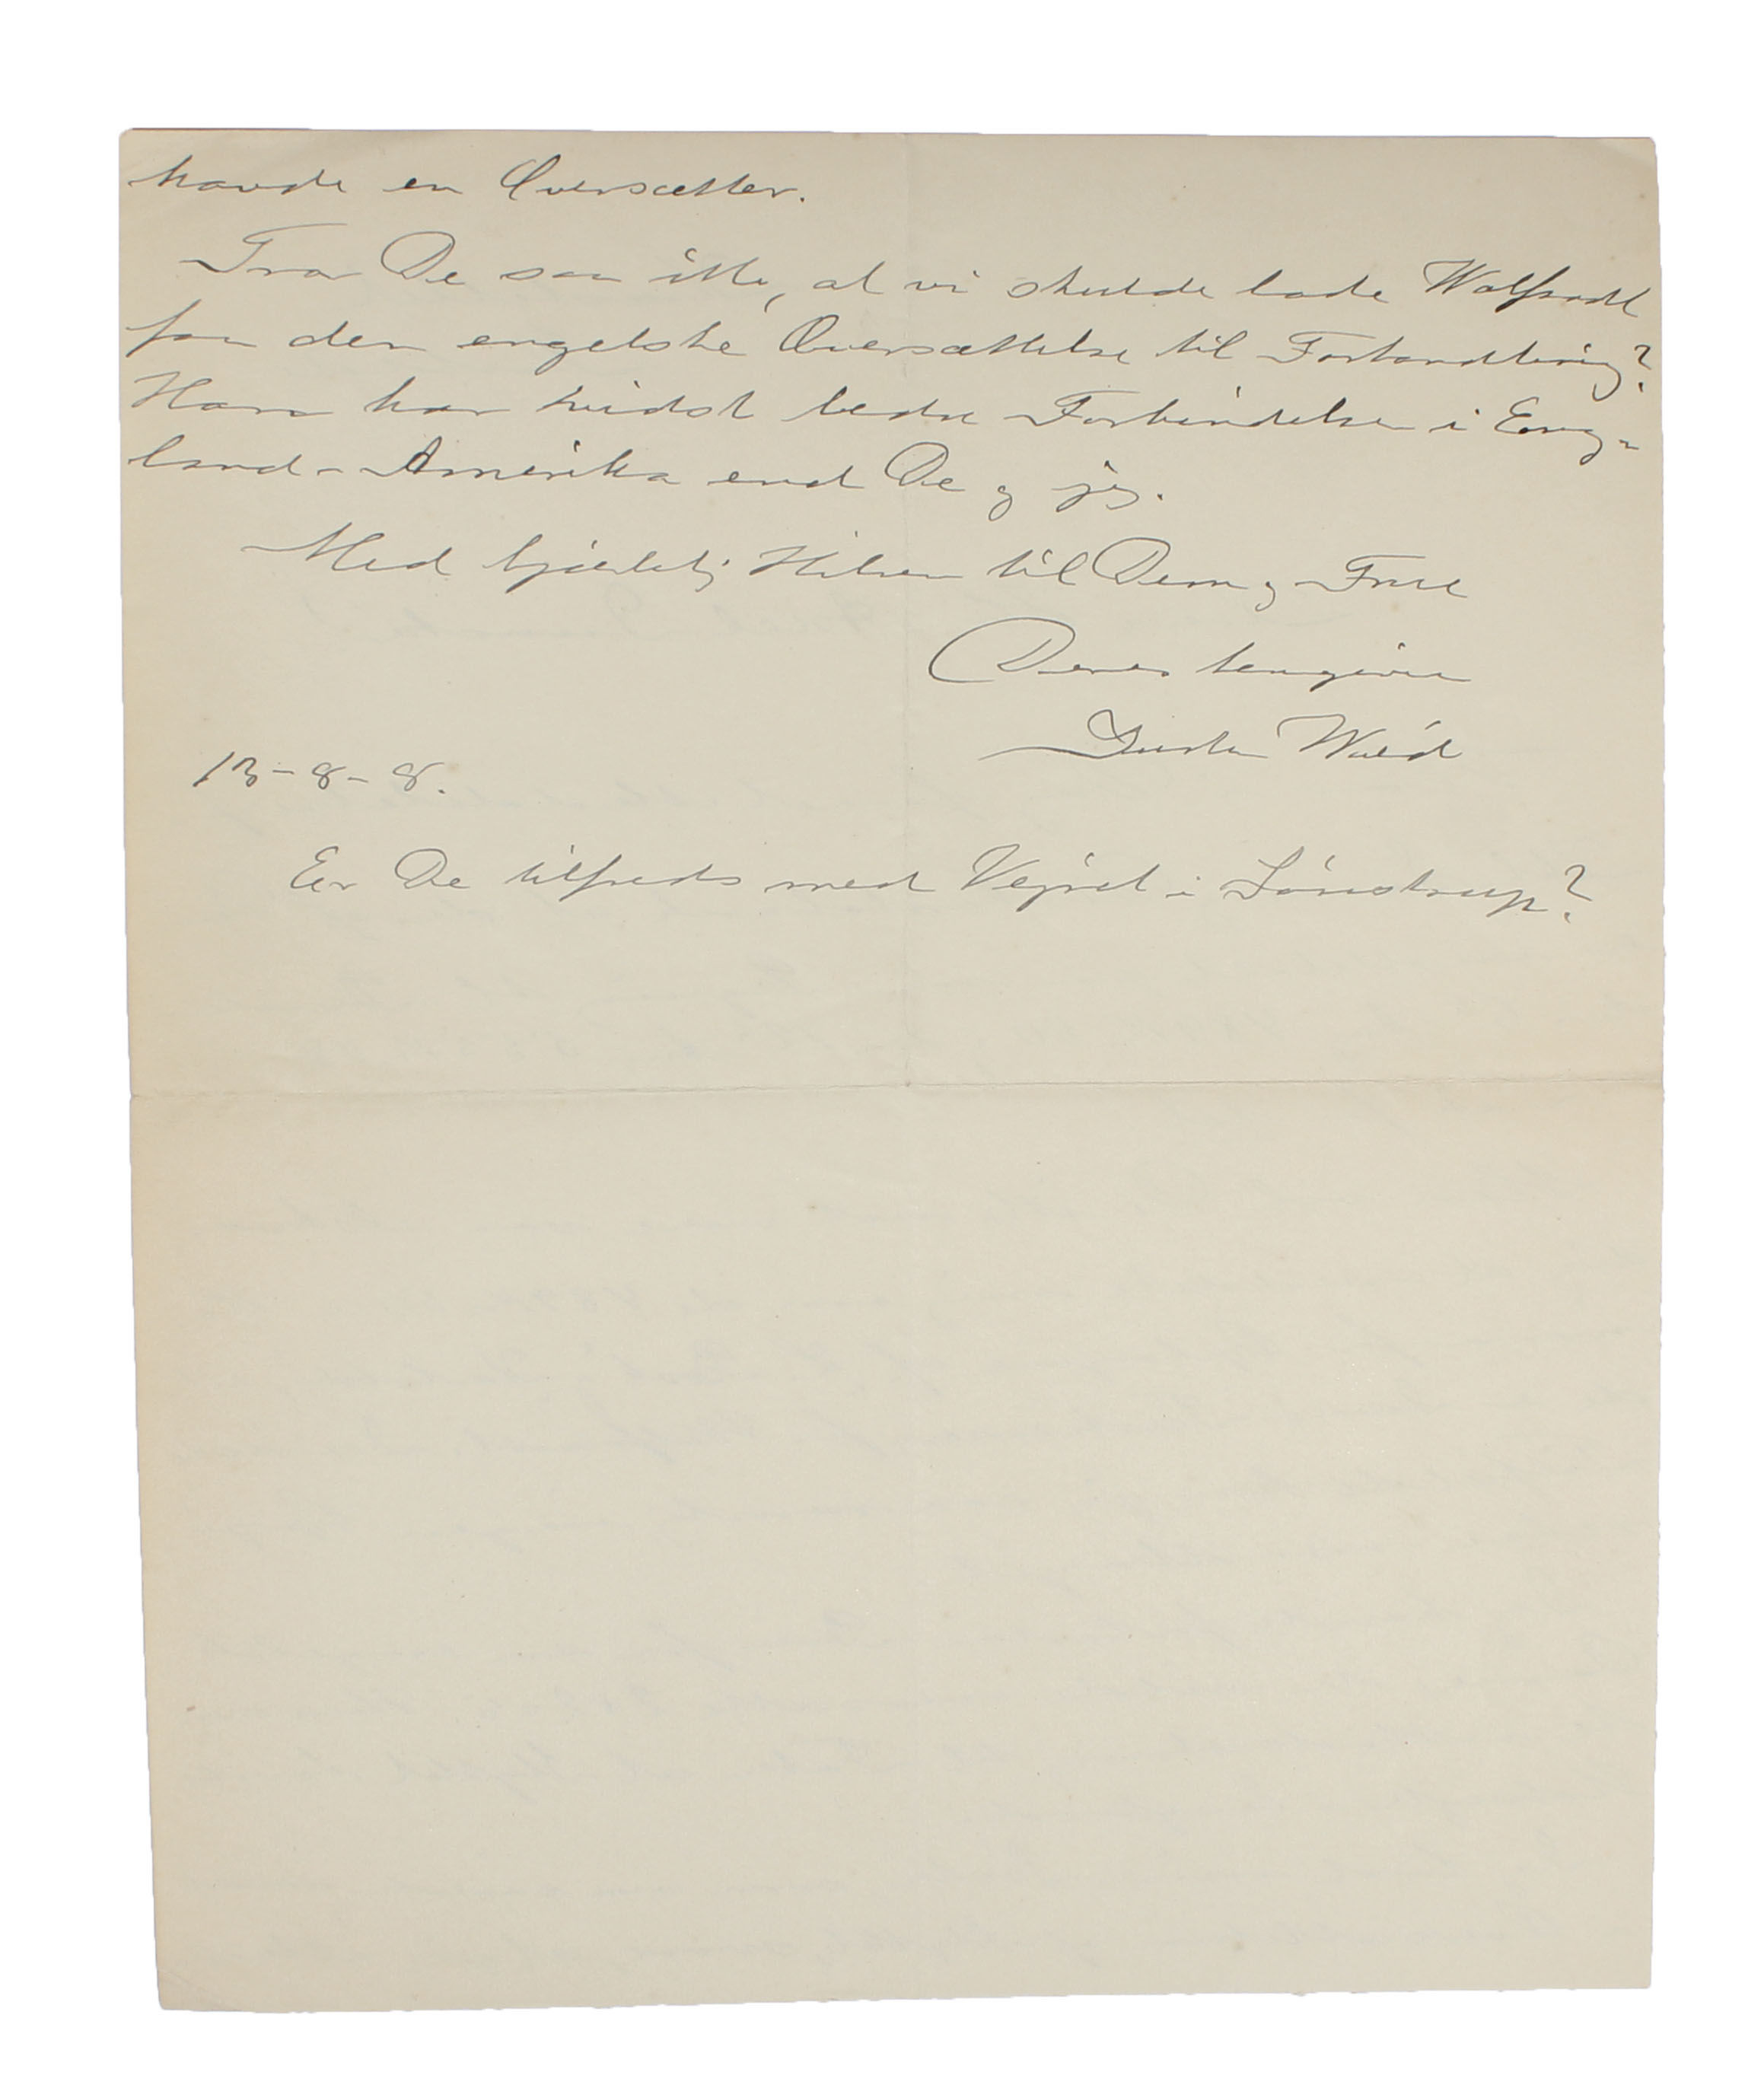 havde en Oversætter.
Tror De saa ikke, at vi skulde lade Wolfradt
faa den engelske Oversættelse til Forhandling?
Han har vidst bedre Forbindelser i Eng-
land-Amerika end De og jeg.
Med hjærtelig Hilsen til Dem og Frue
Deres hengivne
Gustav Wied
13-8-8.
Er De tilfreds med Vejret i Lönstrup?